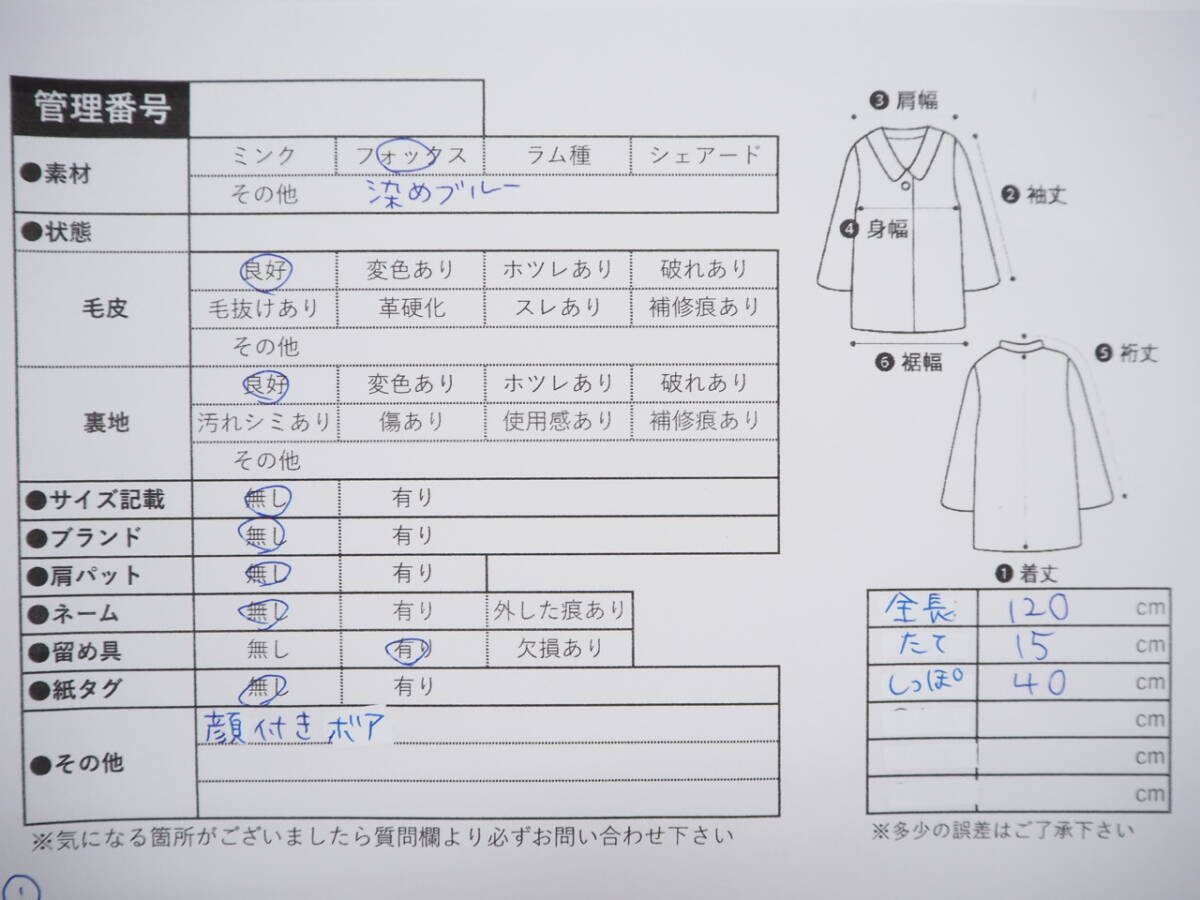 管理番号
●素材 ミンク フォックス ラム種 シェアード
その他 染めブルー
●状態
毛皮 良好 変色あり ホツレあり 破れあり
毛抜けあり 革硬化 スレあり 補修痕あり
その他
裏地 良好 変色あり ホツレあり 破れあり
汚れシミあり 傷あり 使用感あり 補修痕あり
その他
●サイズ記載 無し 有り
●ブランド 無し 有り
●肩パット 無し 有り
●ネーム 無し 有り 外した痕あり
●留め具 無し 有り 欠損あり
●紙タグ 無し 有り
●その他 顔付きボア
※気になる箇所がございましたら質問欄より必ずお問い合わせ下さい
❸ 肩幅
❷ 袖丈
❹ 身幅
❻ 裾幅
❺ 裄丈
❶ 着丈
全長 120 cm
たて 15 cm
しっぽ 40 cm
cm
cm
cm
※多少の誤差はご了承下さい